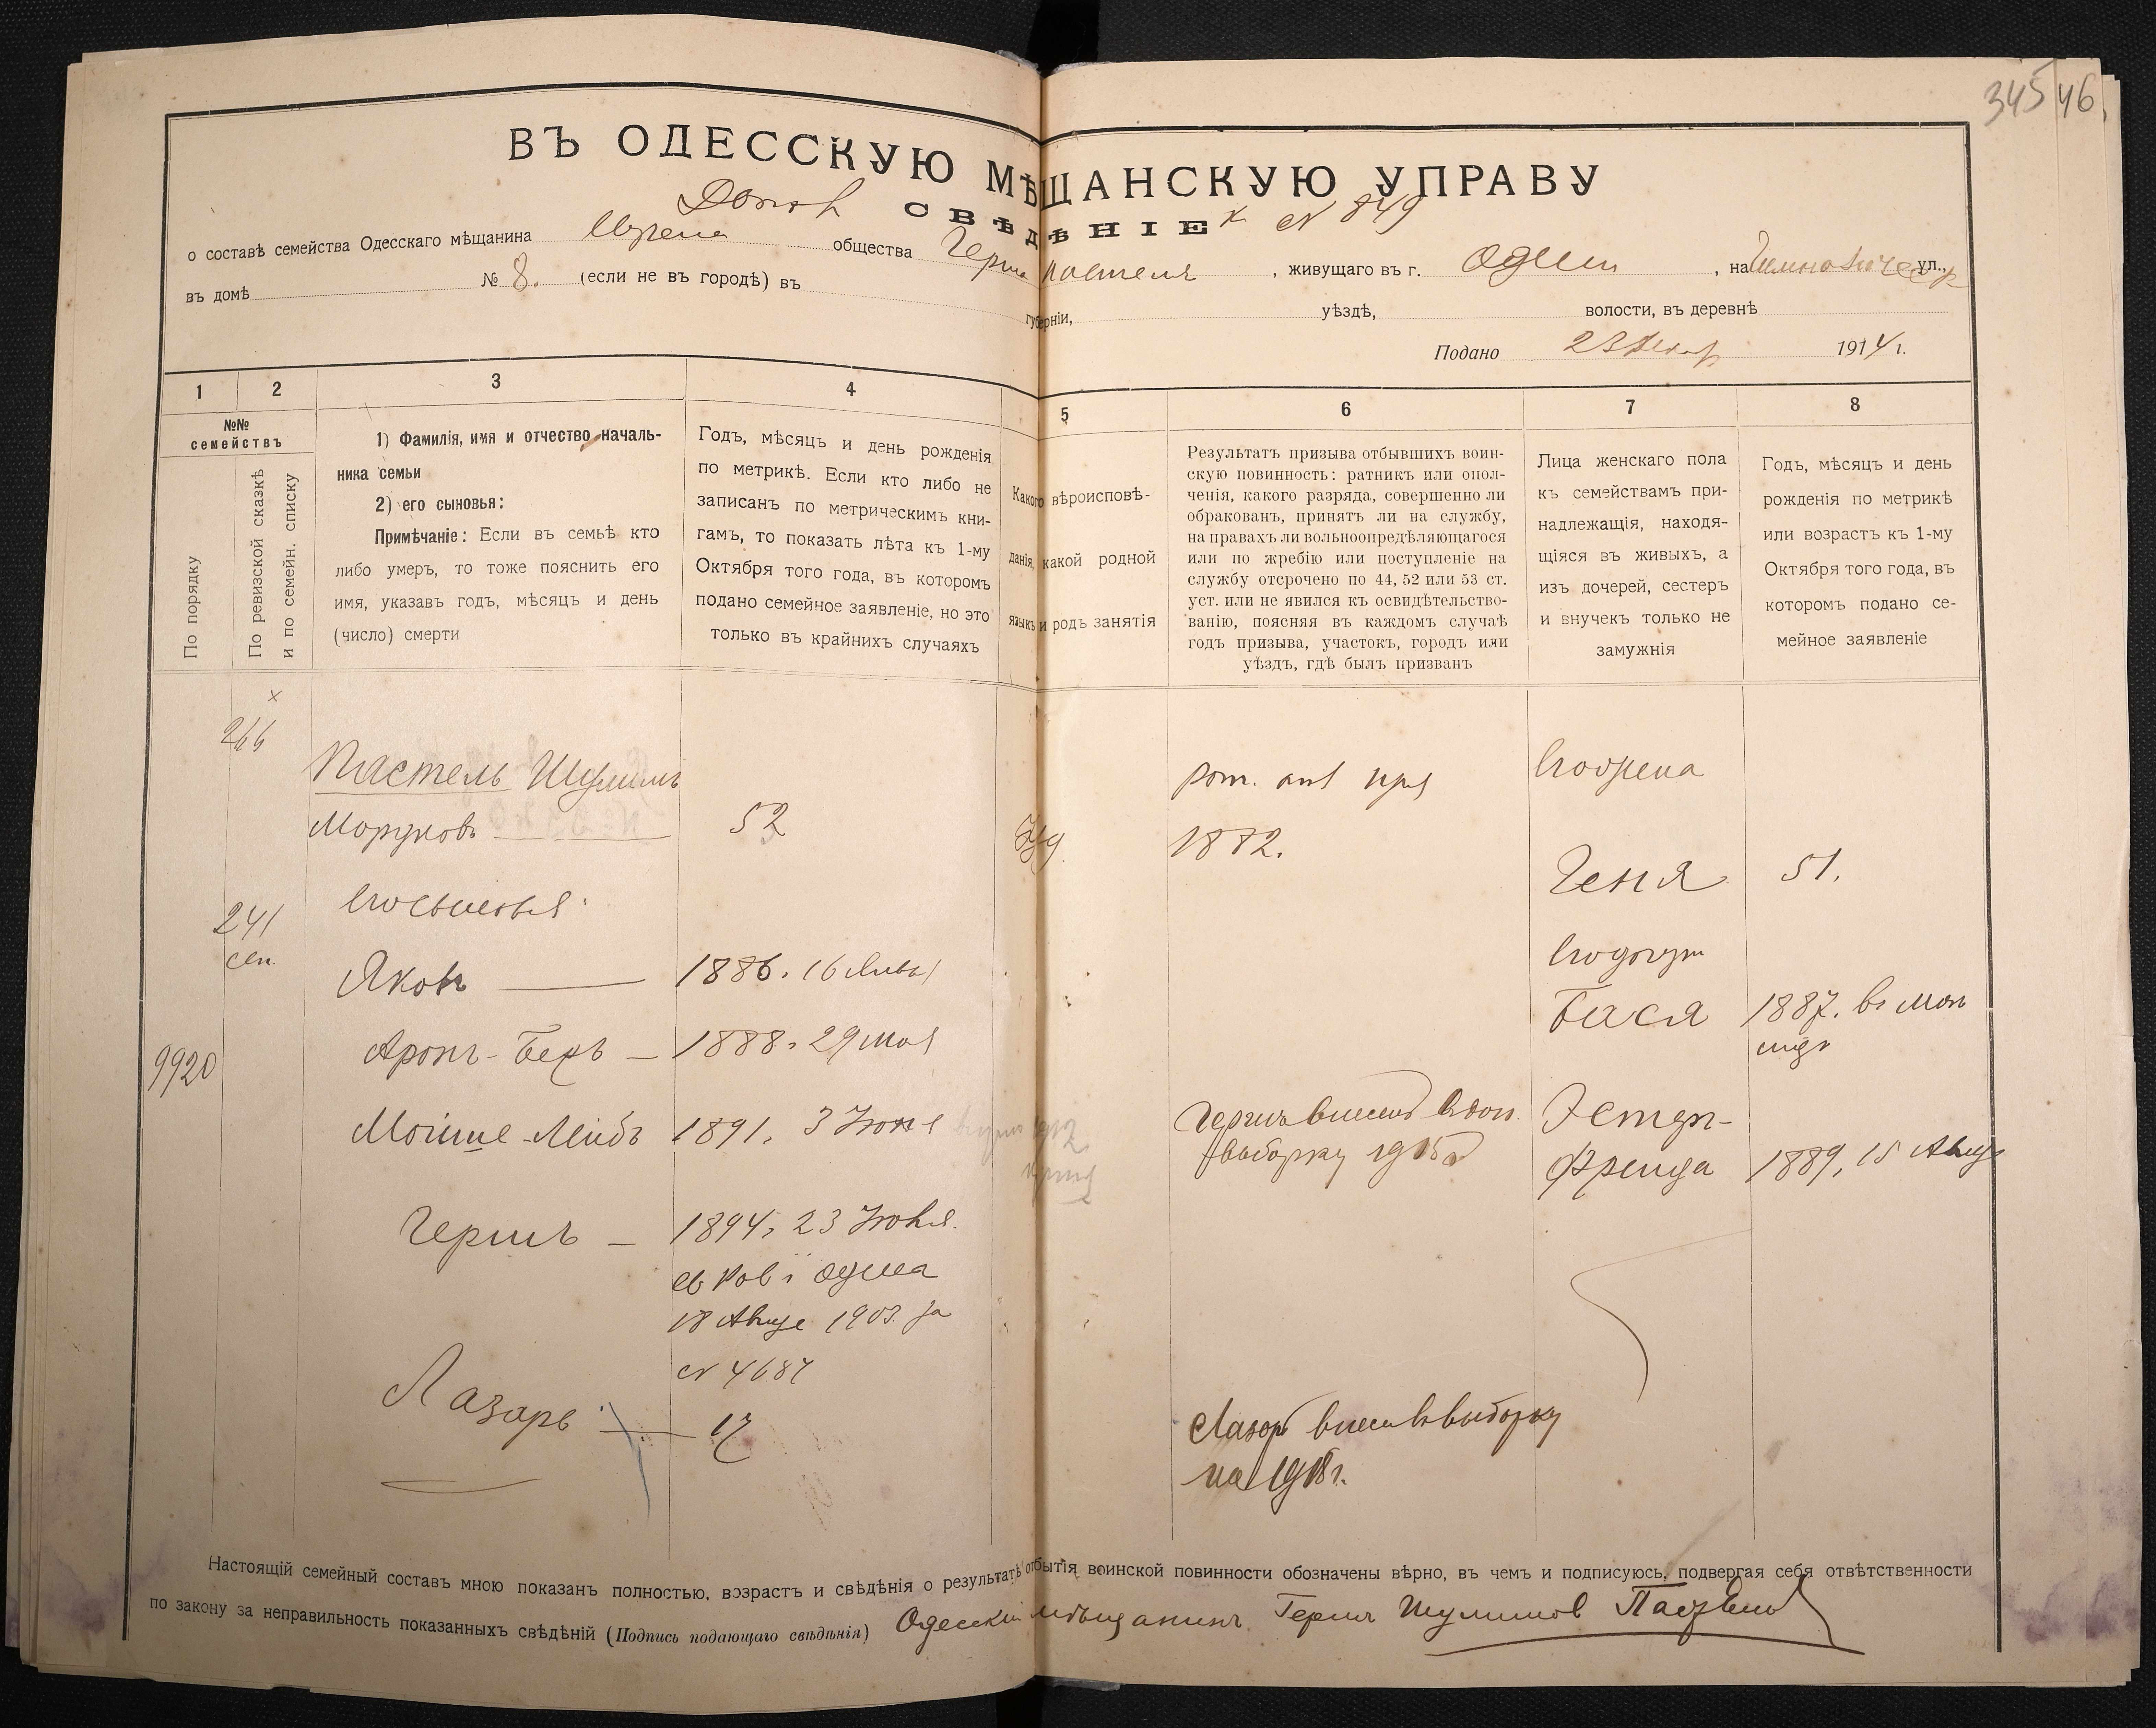 345 46
ВЪ ОДЕССКУЮ МѢЩАНСКУЮ УПРАВУ
СВѢДѢНІЕ к № 849
о составѣ семейства Одесскаго мѣщанина общества Герша Пастеля, живущаго въ г. Одессѣ, на ул.,
въ домѣ № 8. (если не въ городѣ) въ губерніи, уѣздѣ, волости, въ деревнѣ
Подано 23 1914 г.
1 2 3 4 5 6 7 8
№№
семействъ
По порядку
По ревизской сказкѣ
и по семейн. списку
1) Фамилія, имя и отчество началь-
ника семьи
2) его сыновья:
Примѣчаніе: Если въ семьѣ кто
либо умеръ, то тоже пояснить его
имя, указавъ годъ, мѣсяцъ и день
(число) смерти
Годъ, мѣсяцъ и день рожденія
по метрикѣ. Если кто либо не
записанъ по метрическимъ кни-
гамъ, то показать лѣта къ 1-му
Октября того года, въ которомъ
подано семейное заявленіе, но это
только въ крайнихъ случаяхъ
Какого вѣроисповѣ-
данія, какой родной
языкъ и родъ занятія
Результатъ призыва отбывшихъ воин-
скую повинность: ратникъ или опол-
ченія, какого разряда, совершенно ли
обракованъ, принятъ ли на службу,
на правахъ ли вольноопредѣляющагося
или по жребію или поступленіе на
службу отсрочено по 44, 52 или 53 ст.
уст. или не явился къ освидѣтельство-
ванію, поясняя въ каждомъ случаѣ
годъ призыва, участокъ, городъ или
уѣздъ, гдѣ былъ призванъ
Лица женскаго пола
къ семействамъ при-
надлежащія, находя-
щіяся въ живыхъ, а
изъ дочерей, сестеръ
и внучекъ только не
замужнія
Годъ, мѣсяцъ и день
рожденія по метрикѣ
или возрастъ къ 1-му
Октября того года, въ
которомъ подано се-
мейное заявленіе
х
266
Пастель Шулимъ
Мордковъ 52
1882.
Его жена
Геня 51.
241
сем.
Его сыновья:
Яковъ 1886. 16 Янва
Его дочери
Бася 1887.
9920
Аронъ-Беръ 1888. 29 мая
Мойше-Лейбъ 1891. 3 Іюня
1912
Гершъ внесенъ въ доп.
выборку 1915 г
Эстеръ-
Фрейда 1889, 15 Авгу
Гершъ 1894. 23 Іюня.
Одесса
18 Авгус 1903. за
№ 4687
Лазарь 17
Лазарь внесен въ выборку
на 1918 г.
Настоящій семейный составъ мною показанъ полностью, возрастъ и свѣдѣнія о результатѣ отбытія воинской повинности обозначены вѣрно, въ чемъ и подписуюсь, подвергая себя отвѣтственности
по закону за неправильность показанныхъ свѣдѣній (Подпись подающаго свѣдѣнія) Одесскій мѣщанинъ Гершъ Шулимовъ